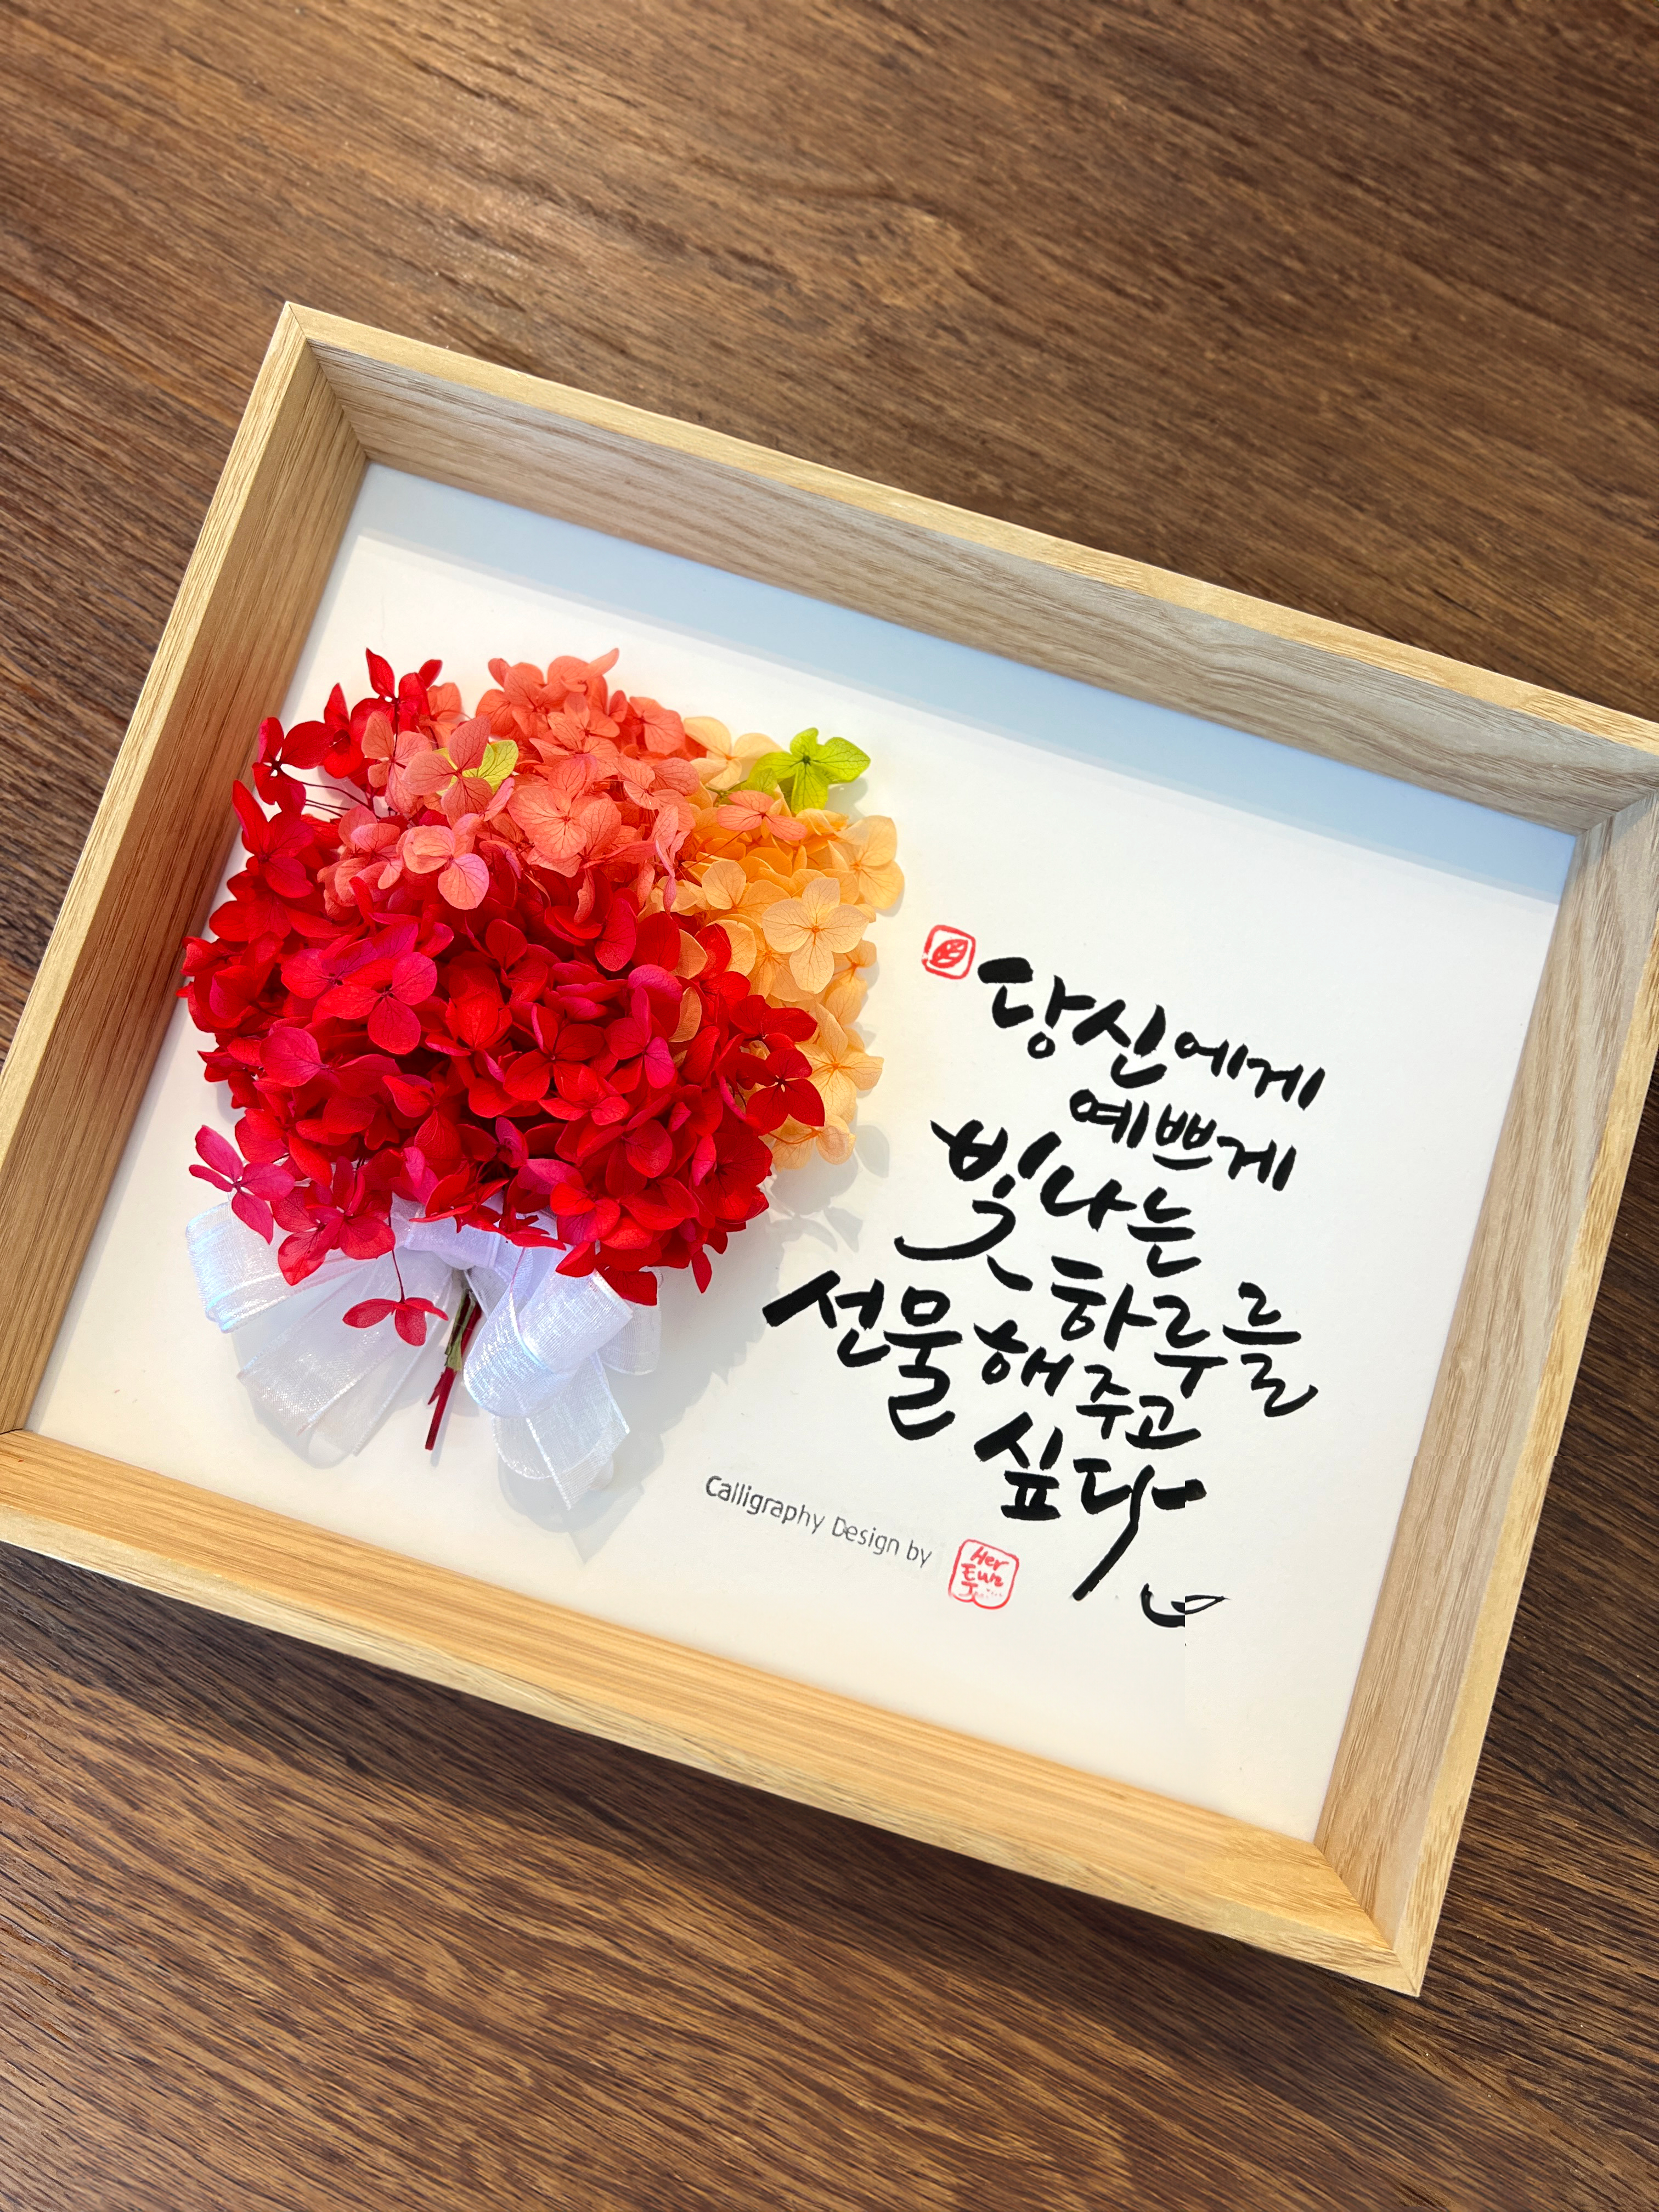 당신에게
예쁘게
빛나는
하루를
선물해주고
싶다
Calligraphy Design by
Her
Eun